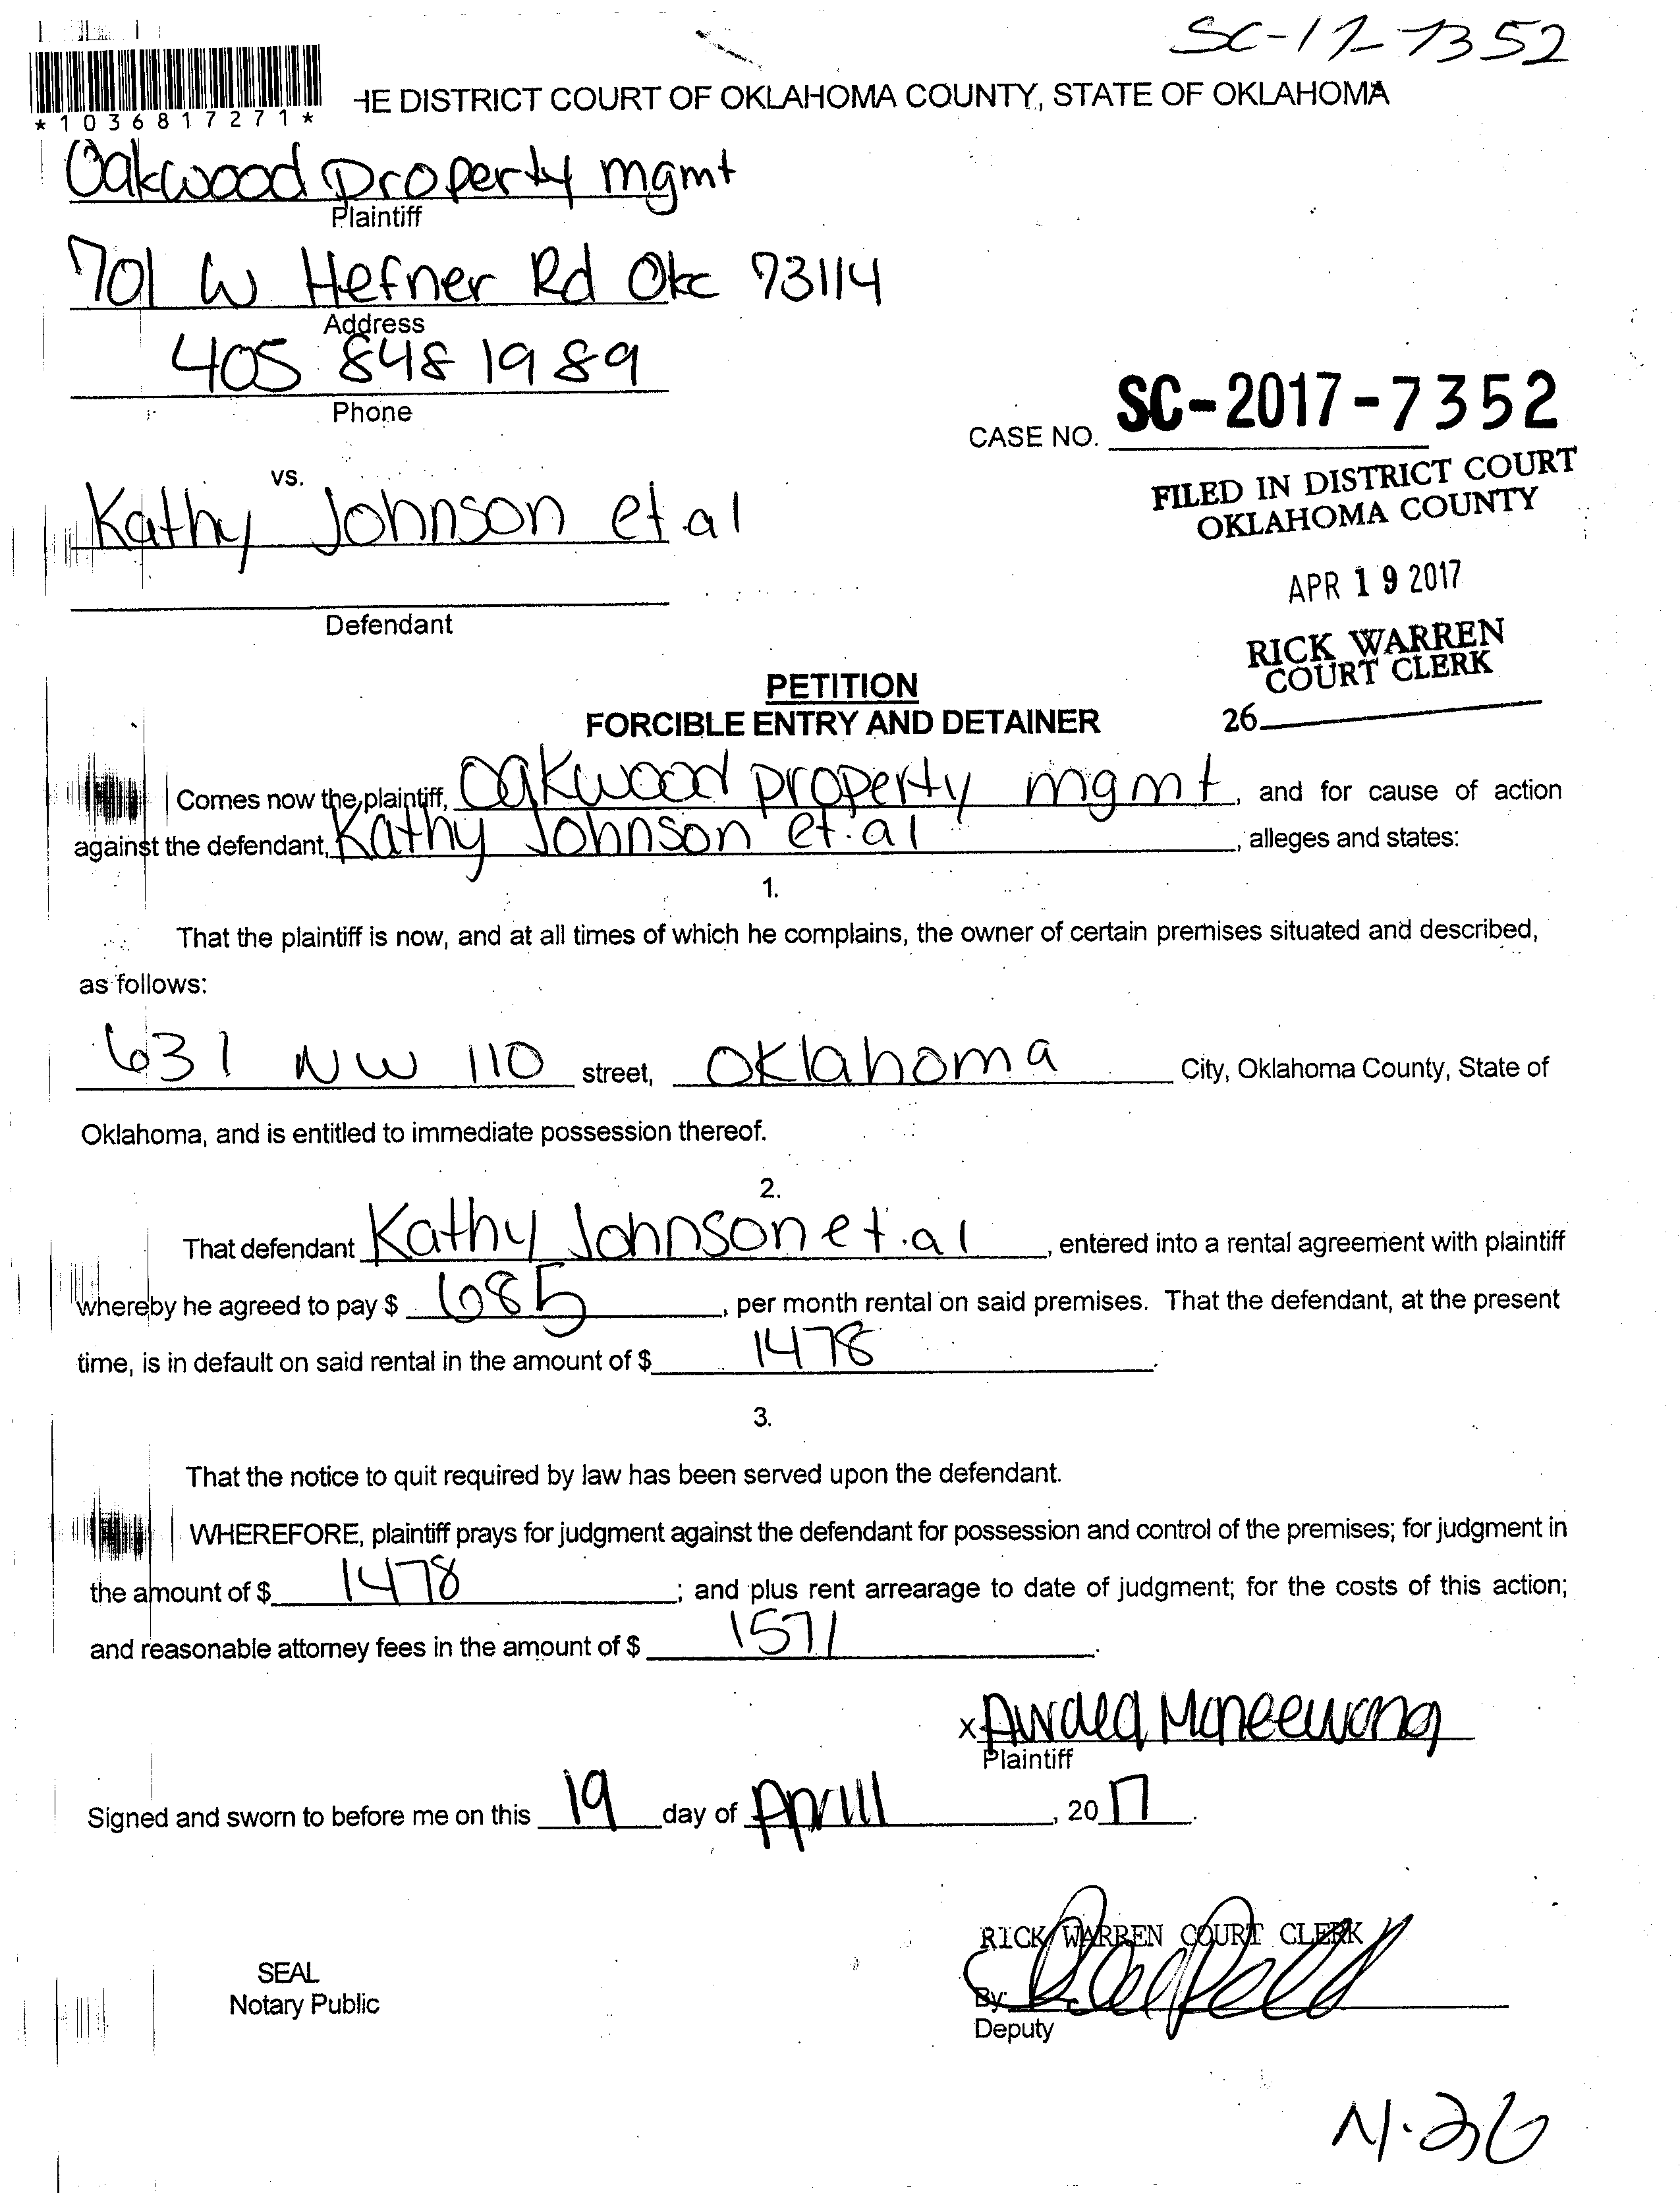 SC-17-7352
*1036817271*
HE DISTRICT COURT OF OKLAHOMA COUNTY, STATE OF OKLAHOMA
Oakwood Property mgmt
Plaintiff
701 W Hefner Rd Okc 73114
Address
405 848 1989
Phone
CASE NO. SC-2017-7352
FILED IN DISTRICT COURT
OKLAHOMA COUNTY
vs.
Kathy Johnson et al
APR 19 2017
Defendant
RICK WARREN
COURT CLERK
26
PETITION
FORCIBLE ENTRY AND DETAINER
Comes now the plaintiff, Oakwood property mgmt, and for cause of action
against the defendant, Kathy Johnson et.al, alleges and states:
1.
That the plaintiff is now, and at all times of which he complains, the owner of certain premises situated and described,
as follows:
631 NW 110 street, Oklahoma City, Oklahoma County, State of
Oklahoma, and is entitled to immediate possession thereof.
2.
That defendant Kathy Johnson et.al, entered into a rental agreement with plaintiff
whereby he agreed to pay $ 685, per month rental on said premises. That the defendant, at the present
time, is in default on said rental in the amount of $ 1478.
3.
That the notice to quit required by law has been served upon the defendant.
WHEREFORE, plaintiff prays for judgment against the defendant for possession and control of the premises; for judgment in
the amount of $ 1478; and plus rent arrearage to date of judgment; for the costs of this action;
and reasonable attorney fees in the amount of $ 1571.
x
Plaintiff
Signed and sworn to before me on this 19 day of Aprill, 2017.
RICK WARREN COURT CLERK
SEAL
Notary Public
By:
Deputy
N-26